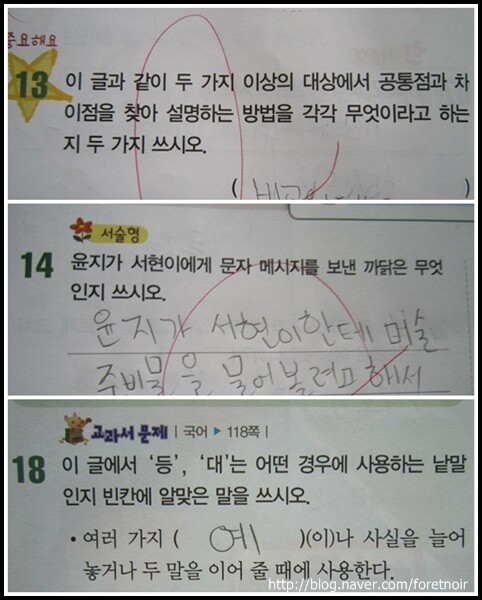 중요해요
13 이 글과 같이 두 가지 이상의 대상에서 공통점과 차
이점을 찾아 설명하는 방법을 각각 무엇이라고 하는
지 두 가지 쓰시오.
( )
서술형
14 윤지가 서현이에게 문자 메시지를 보낸 까닭은 무엇
인지 쓰시오.
윤지가 서현이한테 미술
주비물을 물어볼려고 해서
교과서 문제 | 국어 ▶ 118쪽 |
18 이 글에서 '등', '대'는 어떤 경우에 사용하는 낱말
인지 빈칸에 알맞은 말을 쓰시오.
• 여러 가지 ( 예 )(이)나 사실을 늘어
놓거나 두 말을 이어 줄 때에 사용한다.
http://blog.naver.com/foretnoir